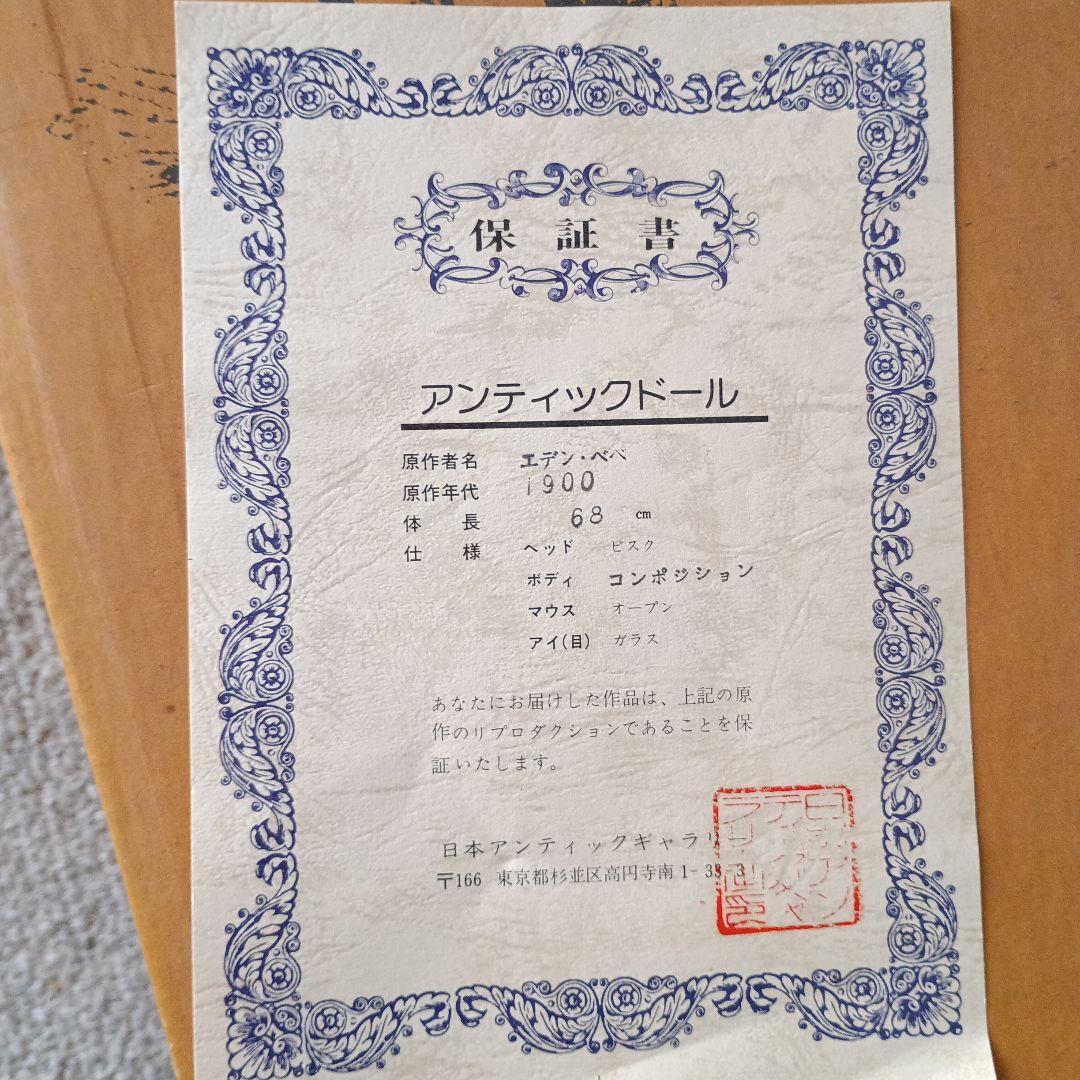 保証書
アンティックドール
原作者名 エデン・ベベ
原作年代 1900
体長 68 cm
仕様 ヘッド ビスク
ボディ コンポジション
マウス オープン
アイ(目) ガラス
あなたにお届けした作品は、上記の原
作のリプロダクションであることを保
証いたします。
日本アンティックギャラリー
〒166 東京都杉並区高円寺南1-33-3